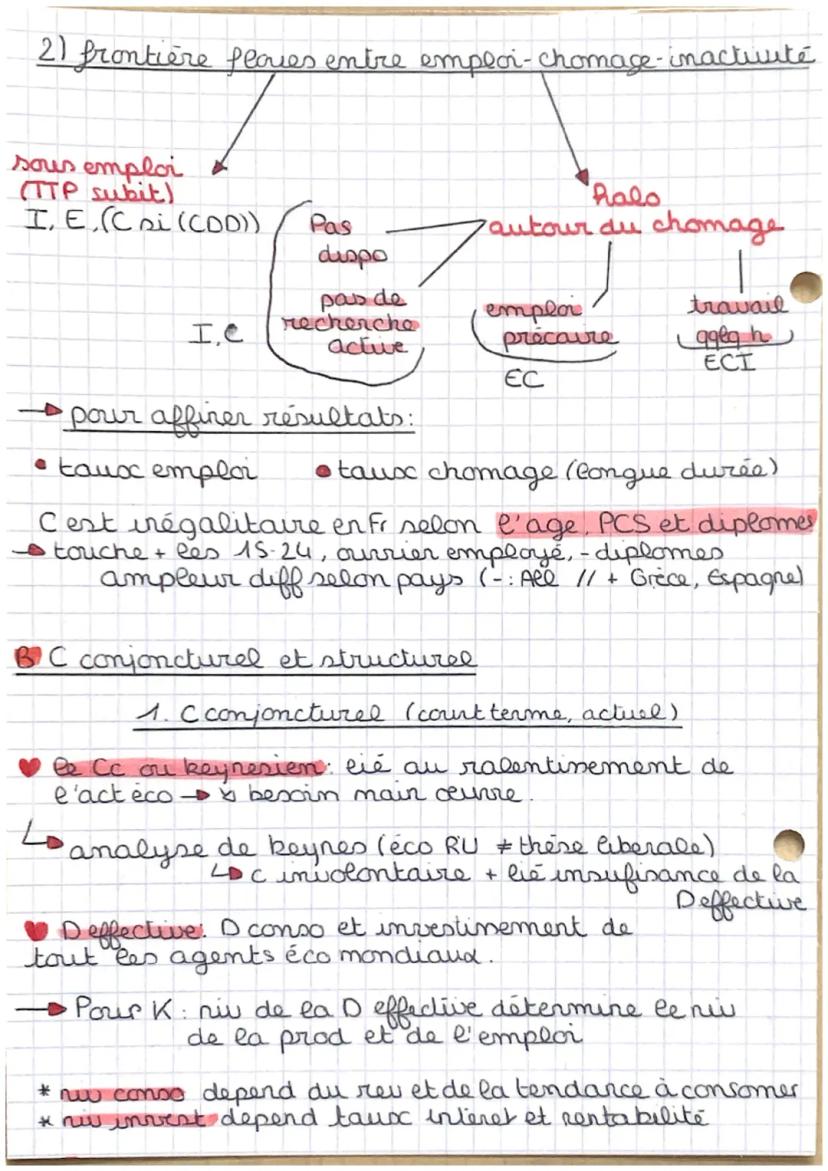 2) frontière floues entre emploi-chomage-inactivité
sous emploi
(TTP subit)
I, E, (C si (CDD))
halo
autour du chomage
Pas
dispo
pas de
recherche
active
I,C
emploi
précaire
EC
travail
qqlq h
ECI
→ pour affiner résultats:
• taux emploi • taux chomage (longue durée)
C est inégalitaire en Fr selon l'age, PCS et diplomes
→ touche + les 15-24, ouvrier employé, - diplomes
ampleur diff selon pays (-: All // + Grèce, Espagne)
B C conjoncturel et structurel
1. C conjoncturel (court terme, actuel)
♥ le Cc ou keynesien: lié au ralentissement de
l'act éco → ↘ besoin main œuvre.
↳ analyse de keynes (éco RU ≠ thèse liberale)
↳ c involontaire + lié insufisance de la
D effective
♥ D effective: D conso et investissement de
tout les agents éco mondiaux.
→ Pour K: niv de la D effective détermine le niv
de la prod et de l'emploi
* niv conso depend du rev et de la tendance à consomer
* niv invest depend taux interet et rentabilité